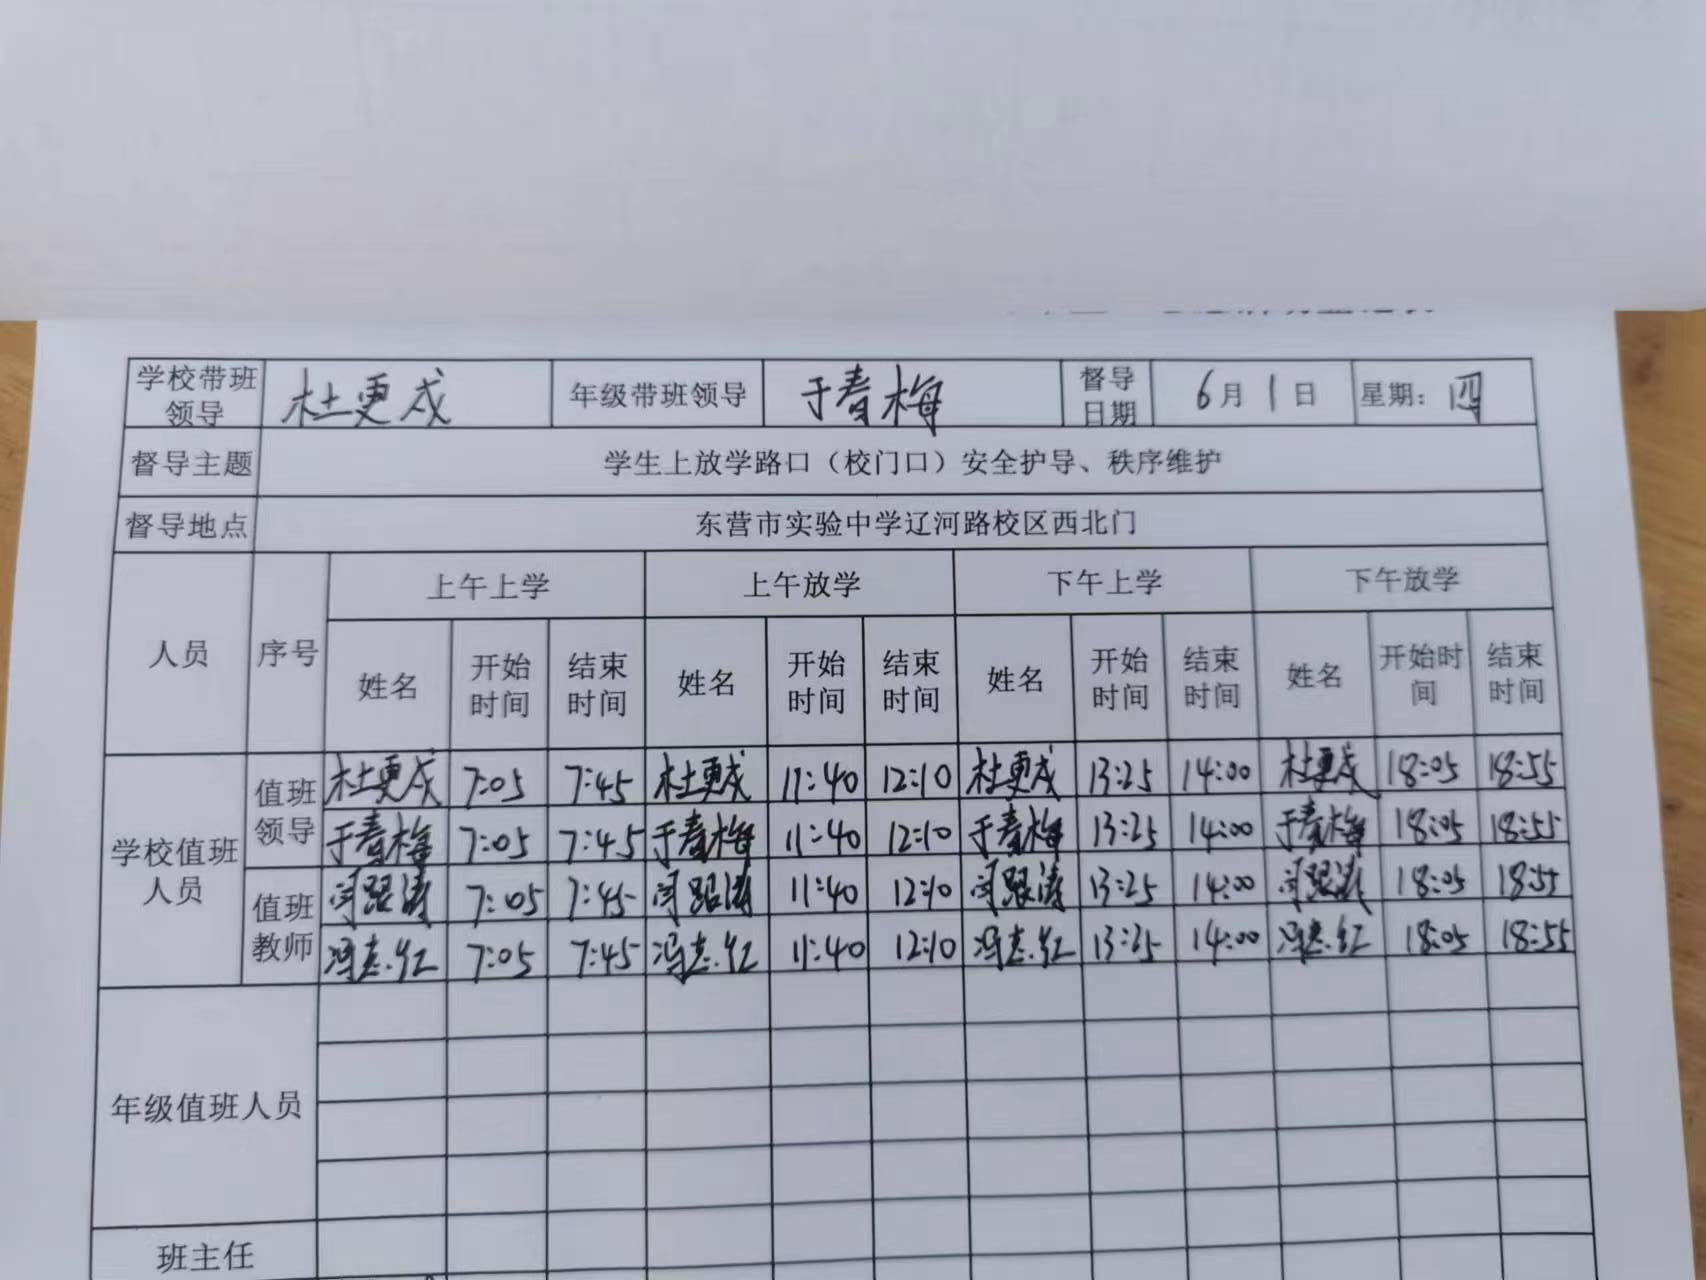 学校带班领导 杜更戍 年级带班领导 于春梅 督导日期 6月1日 星期：四
督导主题 学生上放学路口（校门口）安全护导、秩序维护
督导地点 东营市实验中学辽河路校区西北门
人员 序号 上午上学 上午放学 下午上学 下午放学
姓名 开始时间 结束时间 姓名 开始时间 结束时间 姓名 开始时间 结束时间 姓名 开始时间 结束时间
学校值班人员 值班领导 杜更戍 7:05 7:45 杜更戍 11:40 12:10 杜更戍 13:25 14:00 杜更戍 18:05 18:55
于春梅 7:05 7:45 于春梅 11:40 12:10 于春梅 13:25 14:00 于春梅 18:05 18:55
值班教师 闫跟涛 7:05 7:45 闫跟涛 11:40 12:10 闫跟涛 13:25 14:00 闫跟涛 18:05 18:55
冯志红 7:05 7:45 冯志红 11:40 12:10 冯志红 13:25 14:00 冯志红 18:05 18:55
年级值班人员
班主任